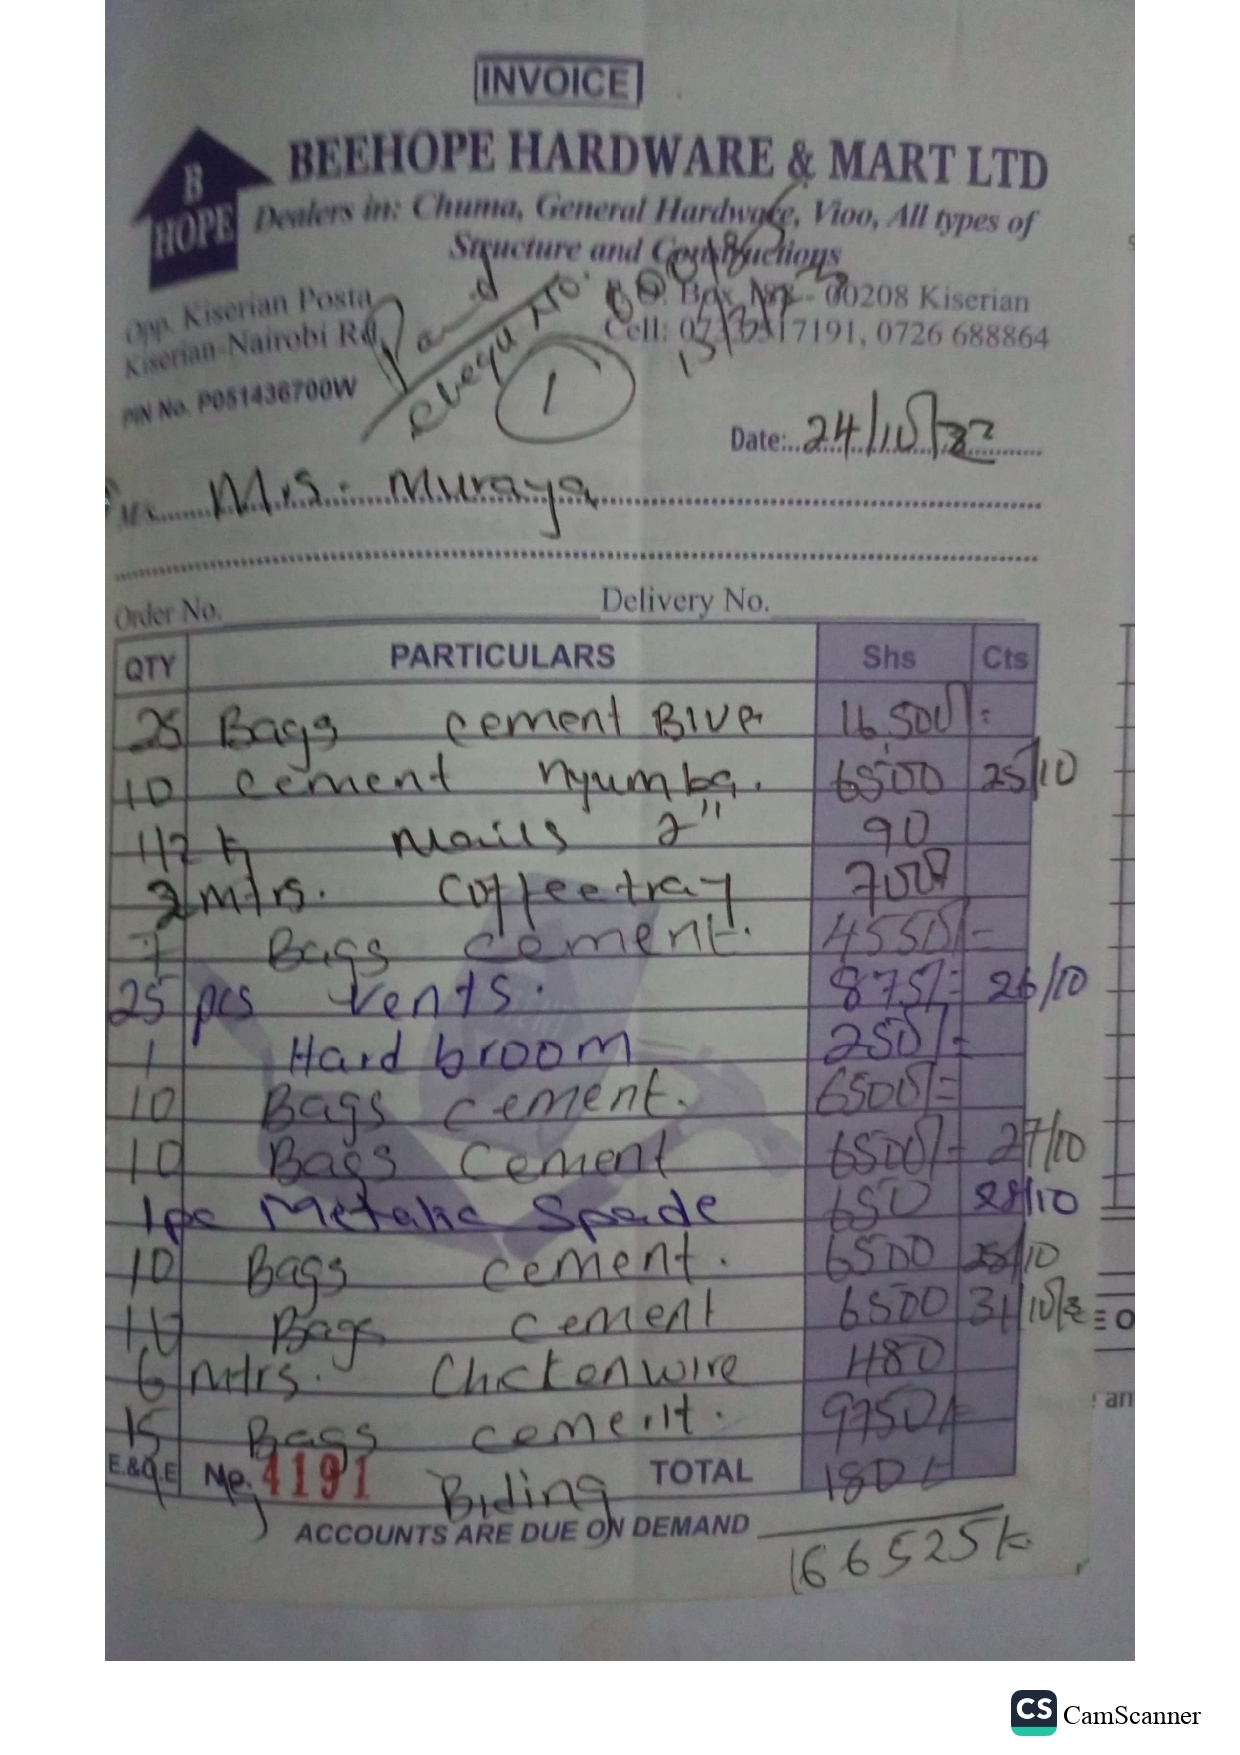 INVOICE
BEEHOPE HARDWARE & MART LTD
B
HOPE
Dealers in: Chuma, General Hardware, Vioo, All types of
Structure and Constructions
Opp. Kiserian Posta
Kiserian-Nairobi Rd,
PIN No. P051436700W
00208 Kiserian
Cell: 0726 688864
Paid
Cheque No.
1
Date: 24/10/22
M/s. Mrs. Muraya
Order No. Delivery No.
QTY PARTICULARS Shs Cts
25 Bags cement Blue 16,500/=
10 cement nyumba. 6500 25/10
1/2 k nails 2" 90
mtrs. Coffeetray 700
7 Bags cement. 4550/=
25 pcs vents. 875/= 26/10
1 Hard broom 250/=
10 Bags cement. 6500/=
10 Bags cement 6500/= 27/10
1pc Metalic Spade 650 28/10
10 Bags cement. 6500 /10
10 Bags cement 6500 31/10
6 mtrs. Chickenwire 1180
15 Bags cement. 9750/=
E.&O.E 4191 Biding TOTAL 180/=
ACCOUNTS ARE DUE ON DEMAND
66525
CS CamScanner